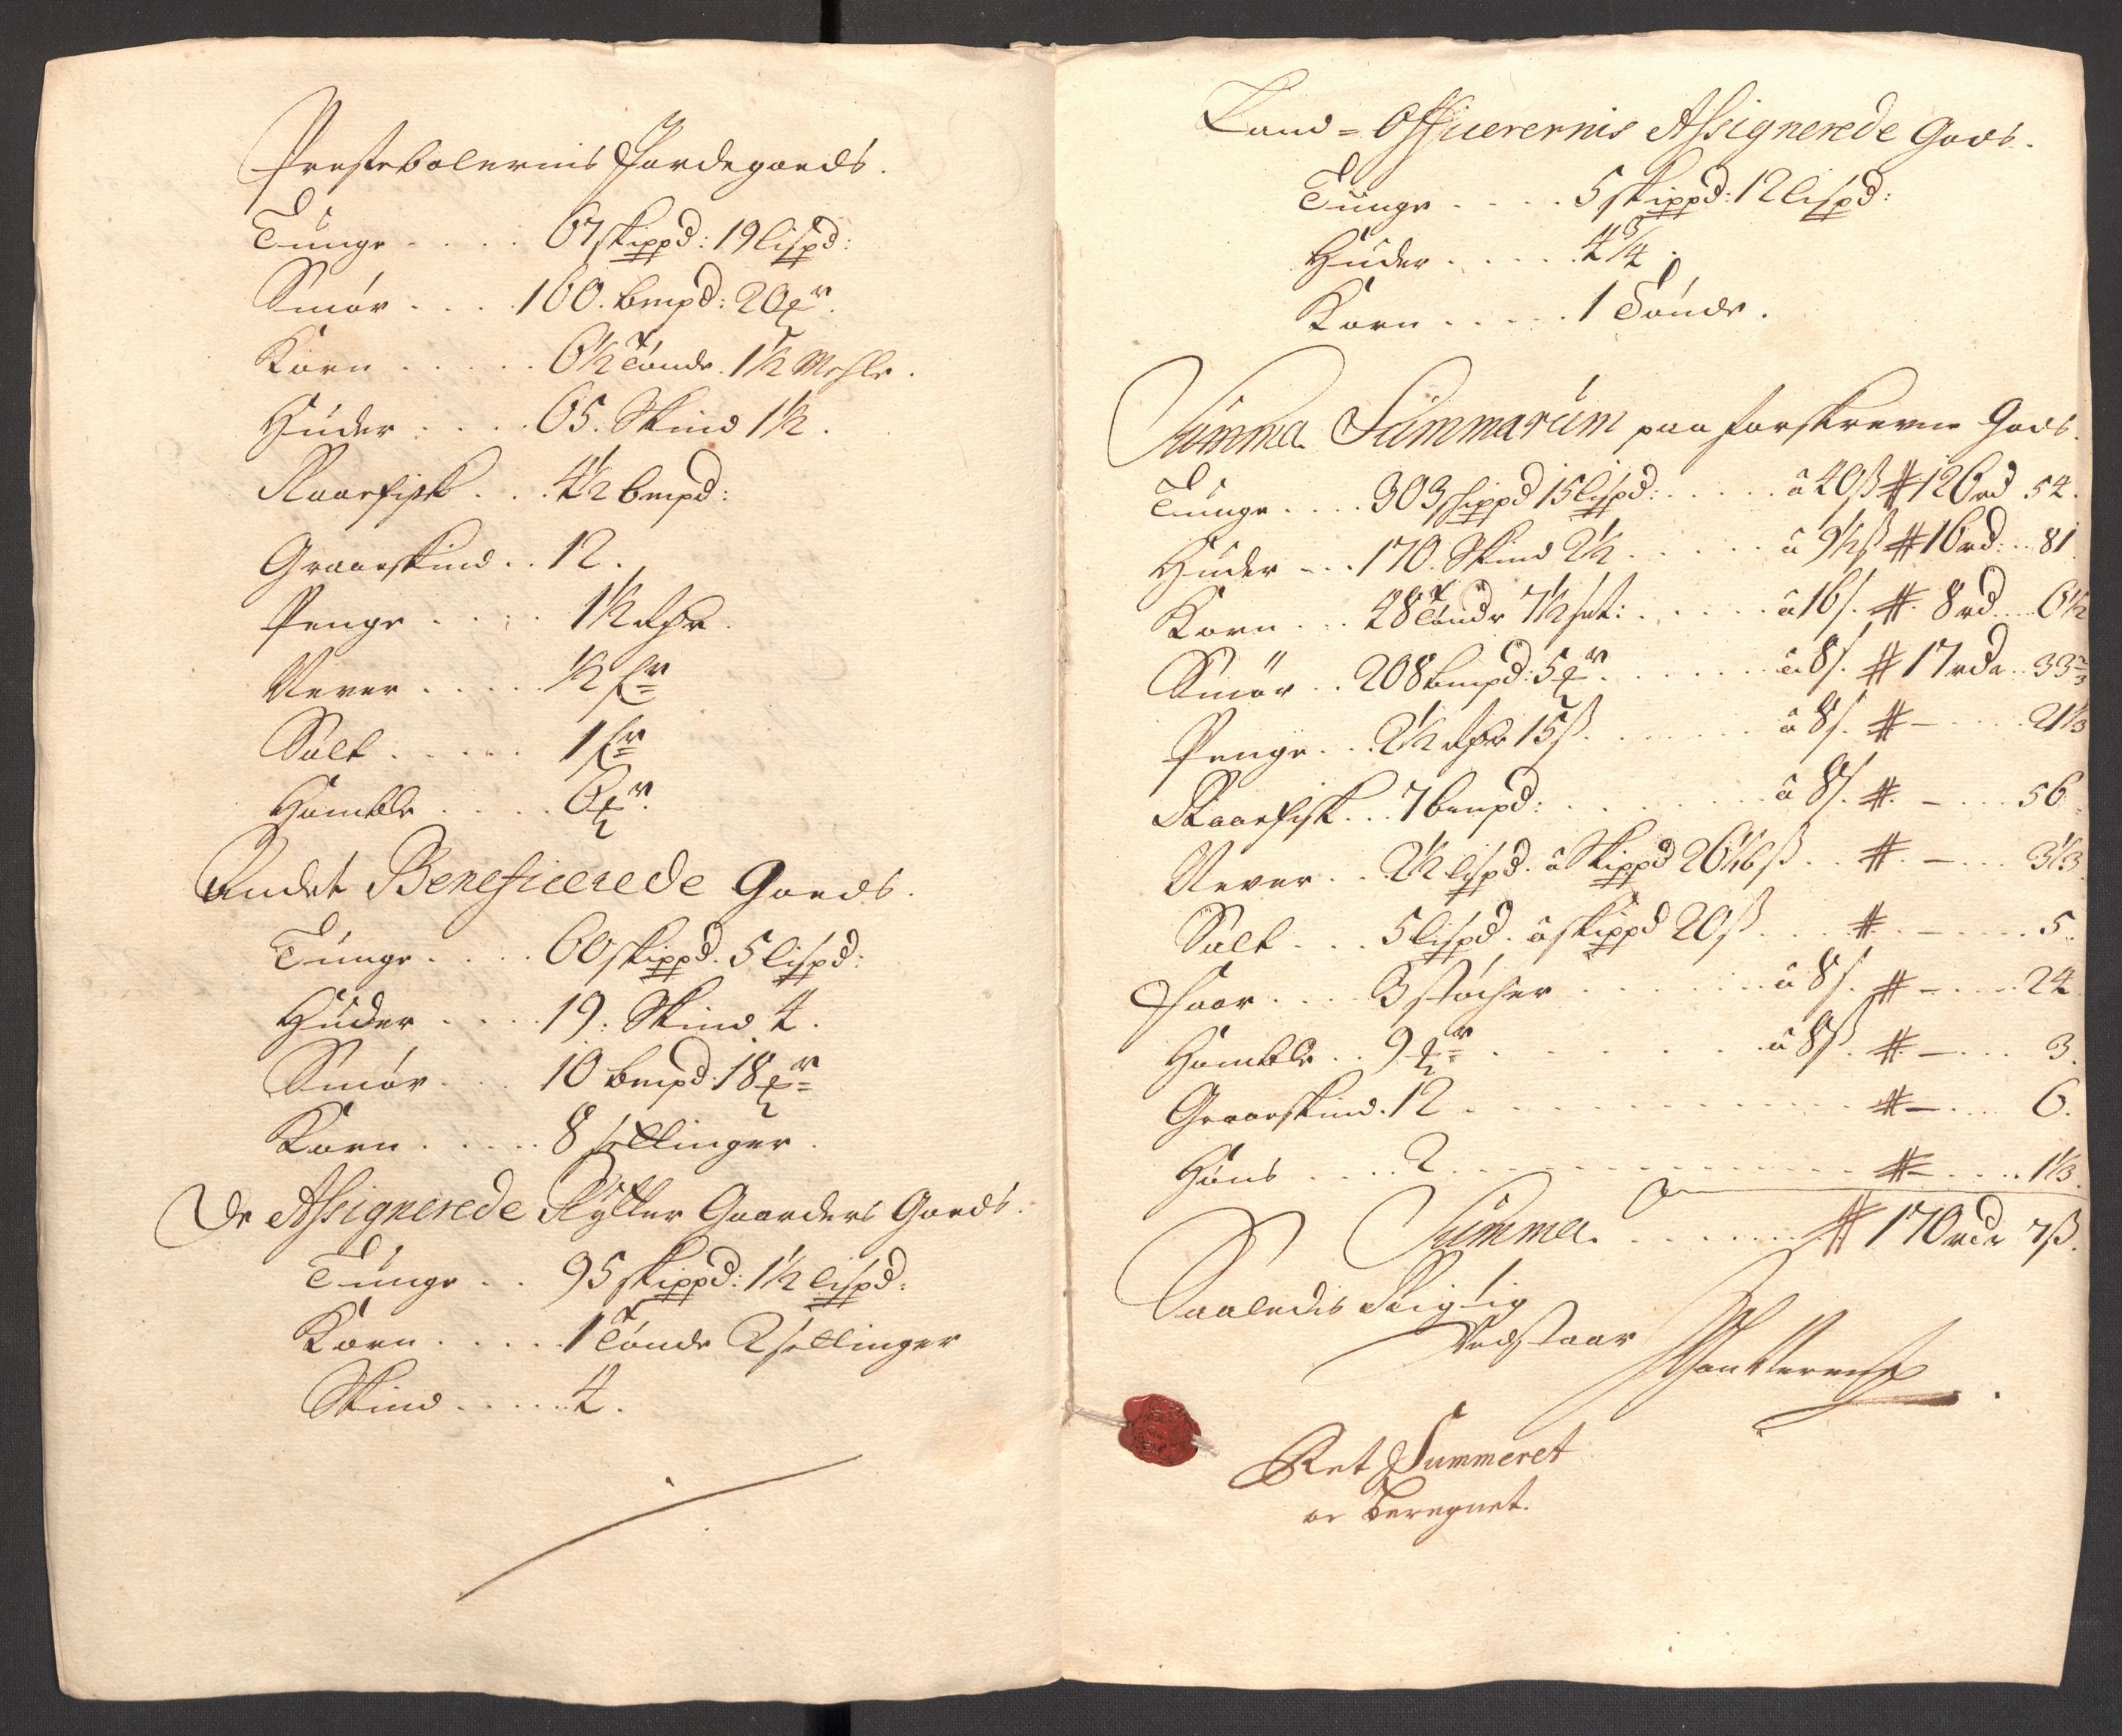 Prestebolernis Jordegoeds.
Tunge .... 67 skippd: 19 lispd:
Smør .... 160. bmpd: 20 mr.
Korn ..... 6½ Tønde. 1½ Mehle.
Huder .... 65. Skind 1½.
Raaefisk ... 4½ bmpd:
Graaeskind .. 12.
Penge .... 1½ dlr.
Never ..... ½ fr
Salt ..... 1 fr
Humble .... 6 mr.
Andet Beneficerede Goeds.
Tunge .... 60 skippd. 5 lispd:
Huder .... 19: Skind 4.
Smør ... 10 bmpd. 18 mr
Korn ..... 8 settinger.
De Assignerede Rytter Gaarders Goeds.
Tunge .. 95 skippd: 1½ lispd:
Korn .... 1 Tønde 2 settinger
Skind ..... 4.
Land=Officerernis Assignerede Gods.
Tunge .... 5 skippd: 12 lispd:
Huder .... 4¾.
Korn ..... 1 Tønde.
Summa Summarum paa forskrevne Gods.
Tunge .... 303 skippd 15 lispd: .... â 40 ß # 126 rd 54.
Huder ... 170. Skind 2½ .... â 9½ ß # 16 rd: .. 81
Korn ... 48 Tønde 7½ set: .... â 16 ß. # 8 rd .. 6½
Smør .. 208 bmpd: 5 mr. .... â 8 ß. # 17 rdr .. 33⅔
Penge .. 2½ dlr 15 ß. .... â 8 ß. # — .... 21⅓
Raaefisk ... 7 bmpd: .... â 8 ß. # — ... 56.
Never .. 2½ lispd. â Skippd 26⅙ ß .. # — ... 3⅓.
Salt ... 5 lispd. â skippd 20 ß ... # — .... 5.
Faar .... 3 støcher .... â 8 ß. # — .... 24
Humble .. 9 mr .... â 8 ß. # — ... 3.
Graaeskind. 12 .... # — .... 6.
Høns .... 2 .... # — .... 1⅓.
Summa. .... # 170 rdr 7 ß.
Saaledis Rigtig
Vedstaar
Ret Summeret
oc beregnet.